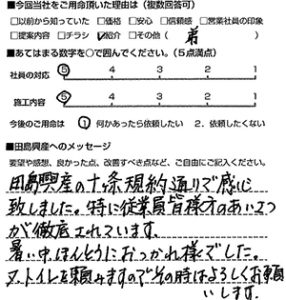 ■今回当社をご用命頂いた理由は（複数回答可）
□以前から知っていた □価格 □安心 □信頼感 □営業社員の印象
□提案内容 □チラシ ☑紹介 □その他（ 弟 ）
■あてはまる数字を○で囲んでください。（5点満点）
社員の対応 5 4 3 2 1
施工内容 5 4 3 2 1
今後のご用命は 1 何かあったら依頼したい 2．依頼したくない
■田島興産へのメッセージ
要望や感想、良かった点、改善すべき点など、ご自由にご記入ください。
田島興産の十条規約通りで感心
致しました。特に従業員皆様方のあいさつ
が徹底されています。
暑い中ほんとうにおつかれ様でした。
又、トイレを頼みますのでその時はよろしくお願
いします。